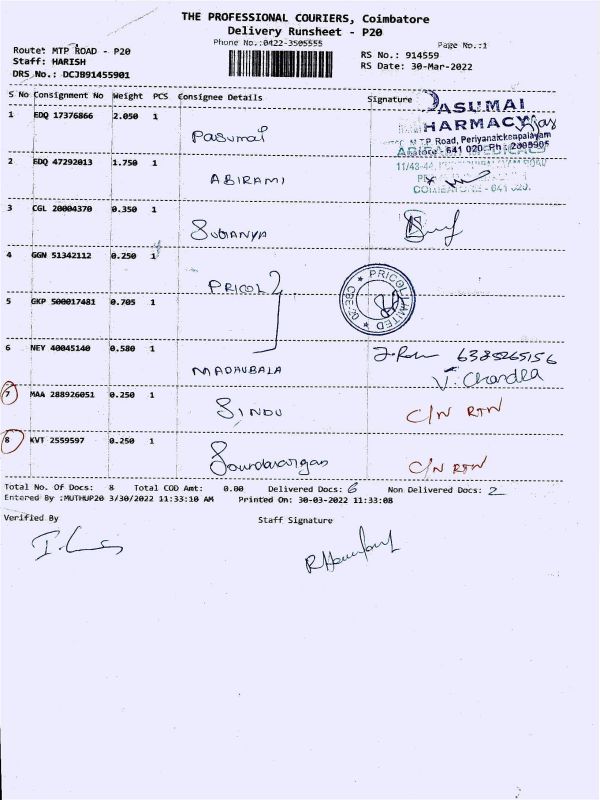 THE PROFESSIONAL COURIERS, Coimbatore
Delivery Runsheet - P20
Phone No.:0422-3505555
Page No.:1
Route: MTP ROAD - P20
RS No.: 914559
Staff: HARISH
RS Date: 30-Mar-2022
DRS No.: DCJB91455901
S No Consignment No Weight PCS Consignee Details Signature
1 EDQ 17376866 2.050 1 Pasumai
PASUMAI
PHARMACY
M.T.P. Road, Periyanaickenpalayam
641 020. Ph : 2695995
2 EDQ 47292013 1.750 1 ABIRAMI
11/43-44,
COIMBATORE - 641 020.
3 CGL 20004370 0.350 1 SUGANYA
4 GGN 51342112 0.250 1 PRICOL
PRICOL LIMITED
CBE-20
5 GKP 500017481 0.705 1
6 NEY 40045140 0.580 1 MADHUBALA
6385265156
V. Chandra
7 MAA 288926051 0.250 1 SINDU C/N RTN
8 KVT 2559597 0.250 1 Soundarargan C/N RTN
Total No. Of Docs: 8 Total COD Amt: 0.00 Delivered Docs: 6 Non Delivered Docs: 2
Entered By :MUTHUP20 3/30/2022 11:33:10 AM Printed On: 30-03-2022 11:33:08
Verified By
Staff Signature